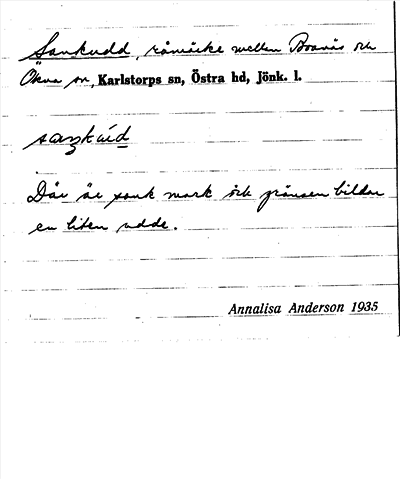 Sankudd, råmärke mellan Boanäs och
Ökna sn, Karlstorps sn, Östra hd, Jönk. l.
Där är sank mark och gränsen bildar
en liten udde.
Annalisa Anderson 1935